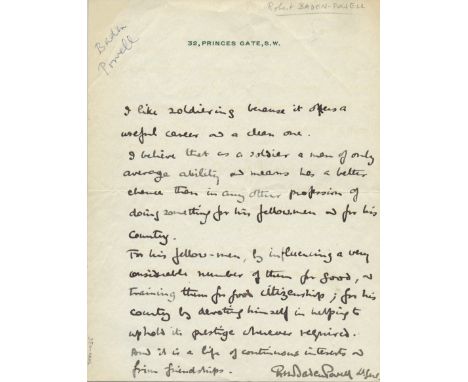 Robert BADEN-POWELL
Baden
Powell
32, PRINCES GATE, S.W.
I like soldiering because it offers a
useful career & a clean one.
I believe that as a soldier a man of only
average ability & means has a better
chance than in any other profession of
doing something for his fellowmen & for his
Country.
For his fellow-men, by influencing a very
considerable number of them for good, &
training them for good citizenship; for his
country by devoting himself in helping to
uphold its prestige wherever required.
And it is a life of continuous interests &
firm friendships. Baden Powell